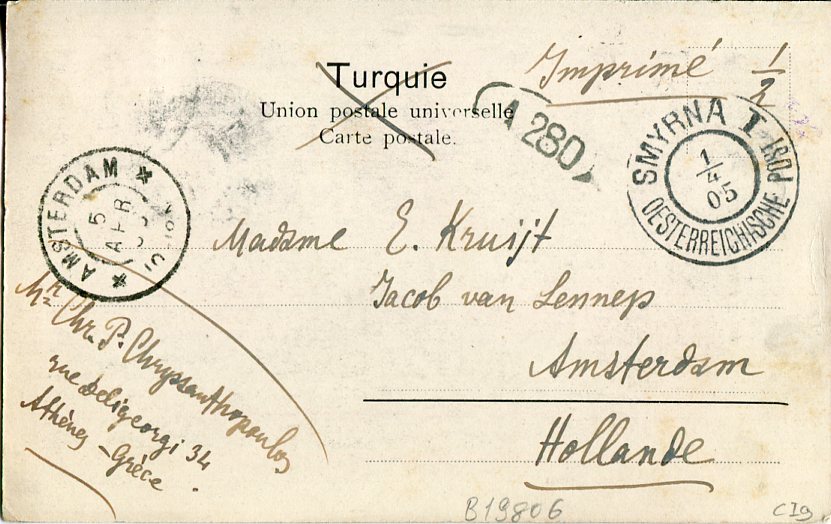 Turquie
Union postale universelle
Carte postale.
Imprimé 1/2
A 280
SMYRNA I
1/4 05
OESTERREICHISCHE POST
AMSTERDAM
5 APR
Madame E. Kruijt
Jacob van Lennep
Amsterdam
Hollande
Mr Chr. P. Chryssanthopoulos
rue Deligeorgi 34
Athènes - Grèce.
B19806
CI9